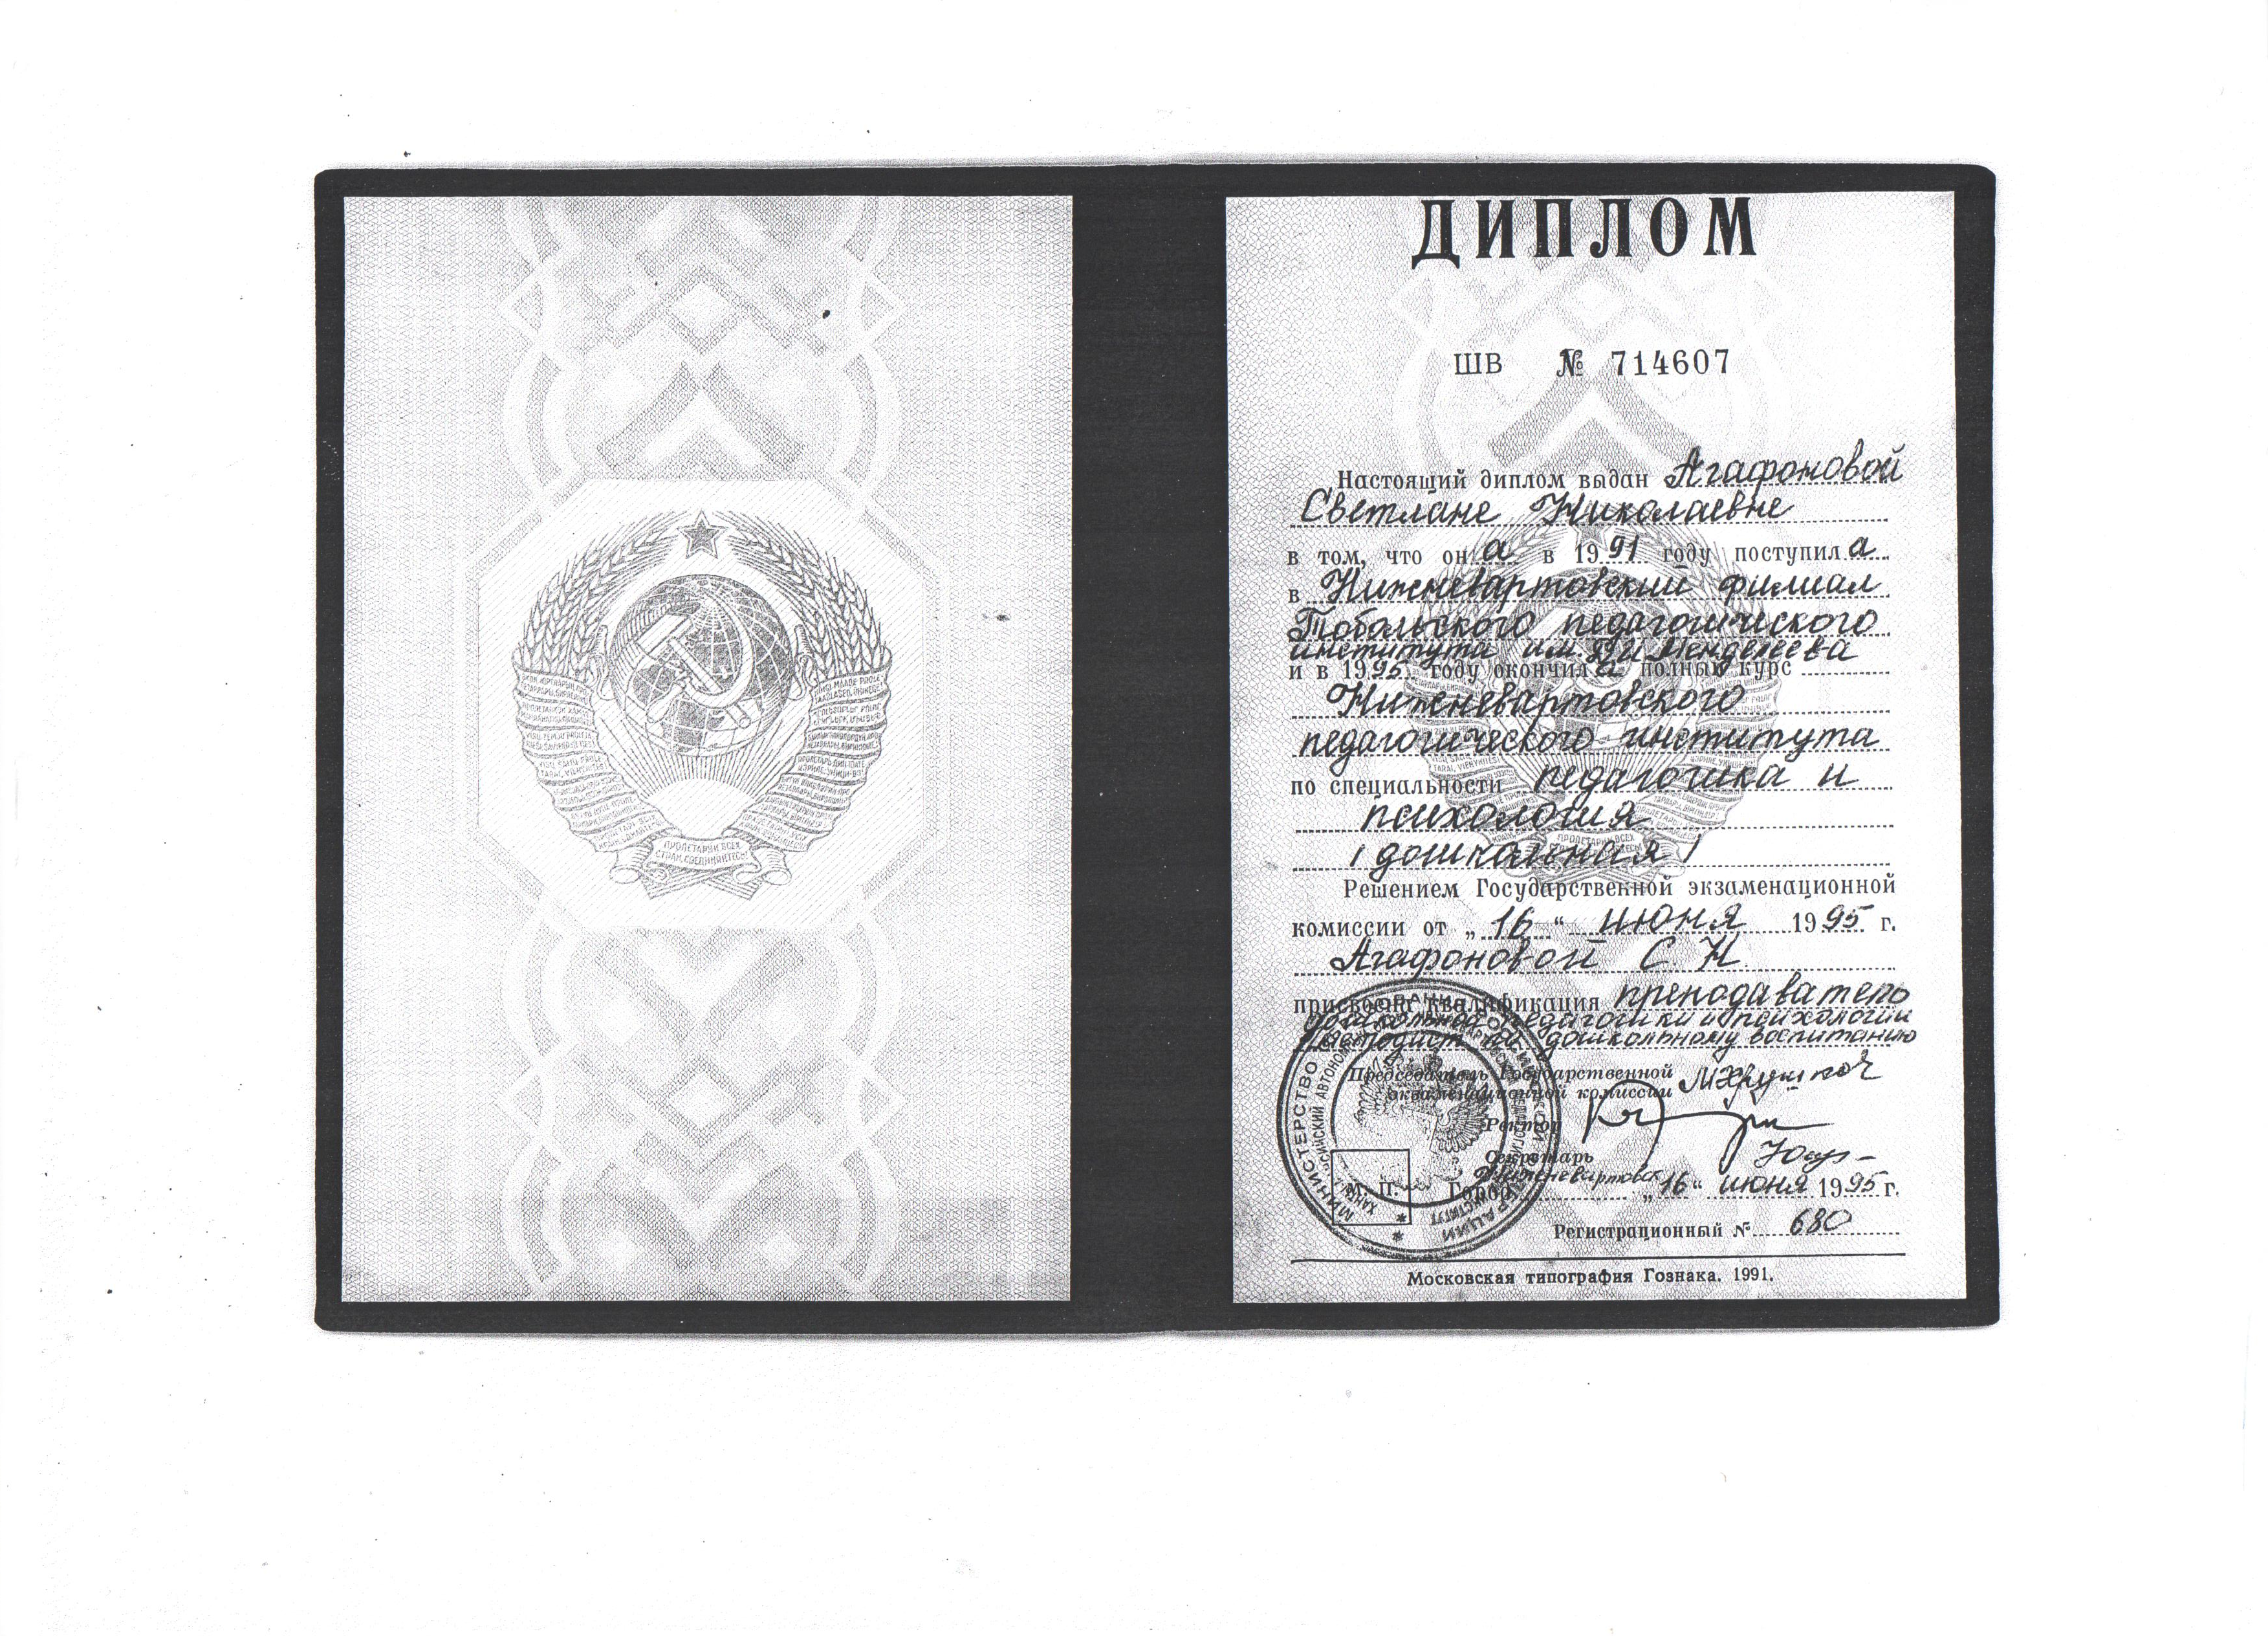 ПРОЛЕТАРИИ ВСЕХ
СТРАН, СОЕДИНЯЙТЕСЬ!
ДИПЛОМ
ШВ № 714607
Настоящий диплом выдан Агафоновой
Светлане Николаевне
в том, что она в 1991 году поступила
в Нижневартовский филиал
Тобольского педагогического
института им. Д.И. Менделеева
и в 1995 году окончила полный курс
Нижневартовского
педагогического института
по специальности педагогика и
психология
/дошкольная/
Решением Государственной экзаменационной
комиссии от „16“ июня 1995 г.
Агафоновой С. Н.
присвоена квалификация преподаватель
дошкольной педагогики и психологии
Методист по дошкольному воспитанию
Председатель Государственной
экзаменационной комиссии
Ректор
Секретарь
М. П. Город Нижневартовск „16“ июня 1995 г.
Регистрационный № 680
Московская типография Гознака. 1991.